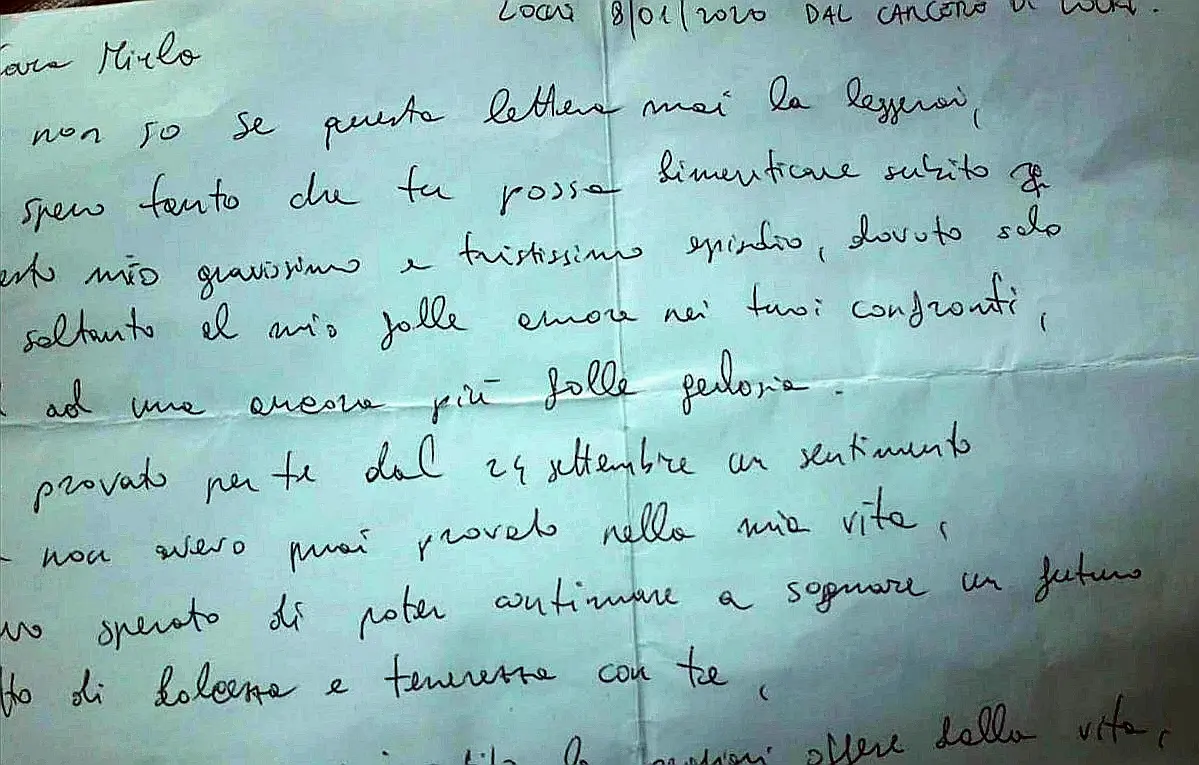 LOCRI 8/01/2020 DAL CARCERE DI LOCRI.
cara Mirko
non so se questa lettera mai la leggerai,
spero tanto che tu possa dimenticare subito
esto mio gravissimo e tristissimo episodio, dovuto solo
soltanto al mio folle amore nei tuoi confronti,
ad una ancora più folle gelosia.
provato per te dal 24 settembre un sentimento
non avevo mai provato nella mia vita,
vo sperato di poter continuare a sognare un futuro
tto di dolcezza e tenerezza con te,
offese dalla vita,